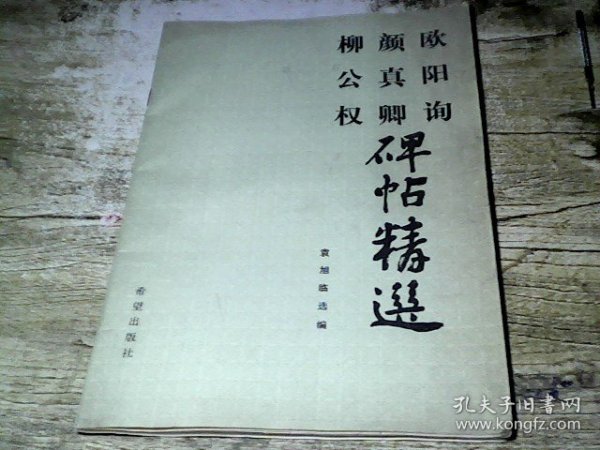 欧阳询
颜真卿
柳公权
碑帖精選
袁旭临选编
希望出版社
孔夫子旧书网
www.kongfz.com